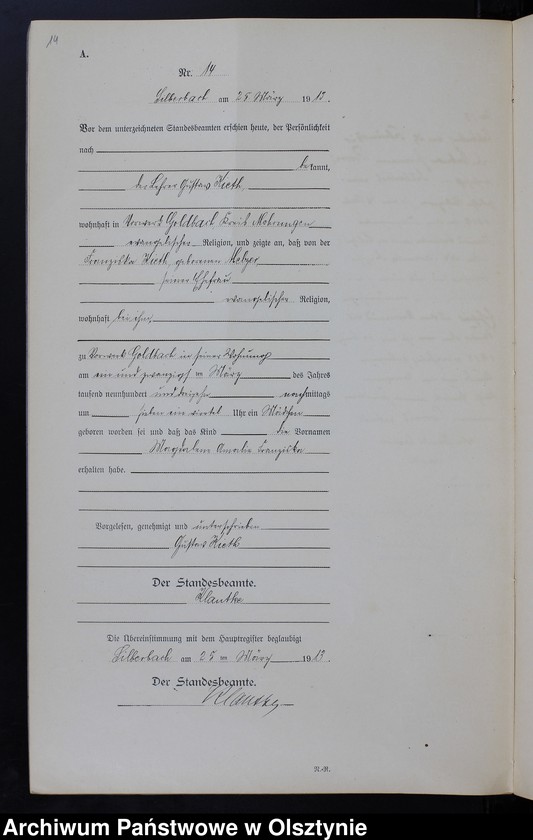 14
A.
Nr. 14
Silberbach am 25 März 1913.
Vor dem unterzeichneten Standesbeamten erschien heute, der Persönlichkeit
nach
bekannt,
der Lehrer Gustav
wohnhaft in Vorwerk Goldbach Kreis Mohrungen
evangelischer Religion, und zeigte an, daß von der
Franziska geborenen Melzer
seiner Ehefrau
evangelischer Religion,
wohnhaft bei ihm,
zu Vorwerk Goldbach in seiner Wohnung
am ein und zwanzigsten März des Jahres
tausend neunhundert und dreizehn nachmittags
um sieben ein viertel Uhr ein Mädchen
geboren worden sei und daß das Kind die Vornamen
Magdalena Amalie Franziska
erhalten habe.
Vorgelesen, genehmigt und unterschrieben
Gustav
Der Standesbeamte.
Klautke
Die Übereinstimmung mit dem Hauptregister beglaubigt
Silberbach am 25 März 1913.
Der Standesbeamte.
Klautke
N.-R.
Archiwum Państwowe w Olsztynie